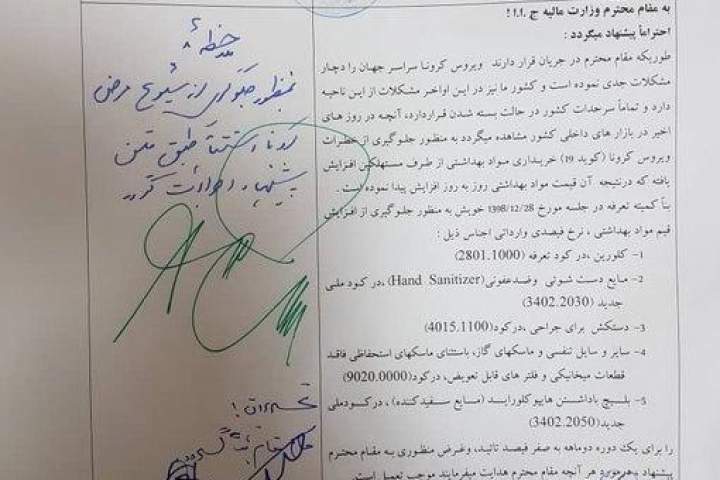 به مقام محترم وزارت مالیه ج .ا.ا !
احتراماً پیشنهاد میگردد :
طوریکه مقام محترم در جریان قرار دارند ویروس کرونا سراسر جهان را دچار
مشکلات جدی نموده است و کشور ما نیز در این اواخر مشکلات از این ناحیه
دارد و تماماً سرحدات کشور در حالت بسته شدن قراردارد، آنچه در روز های
اخیر در بازار های داخلی کشور مشاهده میگردد به منظور جلوگیری از خطرات
ویروس کرونا (کوید 19) خریداری مواد بهداشتی از طرف مستهلکین افزایش
یافته که درنتیجه آن قیمت مواد بهداشتی روز به روز افزایش پیدا نموده است .
بناً کمیته تعرفه در جلسه مورخ 1398/12/28 خویش به منظور جلوگیری از افزایش
قیم مواد بهداشتی ، نرخ فیصدی وارداتی اجناس ذیل :
1- کلورین، در کود تعرفه (2801.1000)
2- مایع دست شوئی وضدعفونی(Hand Sanitizer) ،در کود ملی
جدید (3402.2030)
3- دستکش برای جراحی ،درکود(4015.1100)
4- سایر و سایل تنفسی و ماسکهای گاز، باستثنای ماسکهای استحفاظی فاقد
قطعات میخانیکی و فلتر های قابل تعویض، درکود(9020.0000)
5- بلیچ باداشتن هایپو کلوراید (مایع سفیدکننده) ، درکودملی
جدید(3402.2050)
را برای یک دوره دوماهه به صفر فیصد تائید، وغرض منظوری به مقام محترم
پیشنهاد هر آنچه مقام محترم هدایت میفرمایند موجب تعمیل است.
ملاحظه شد
بمنظور جلوگیری از شیوع مرض
کرونا استثناً طبق متن
پیشنهاد اجراآت گردد